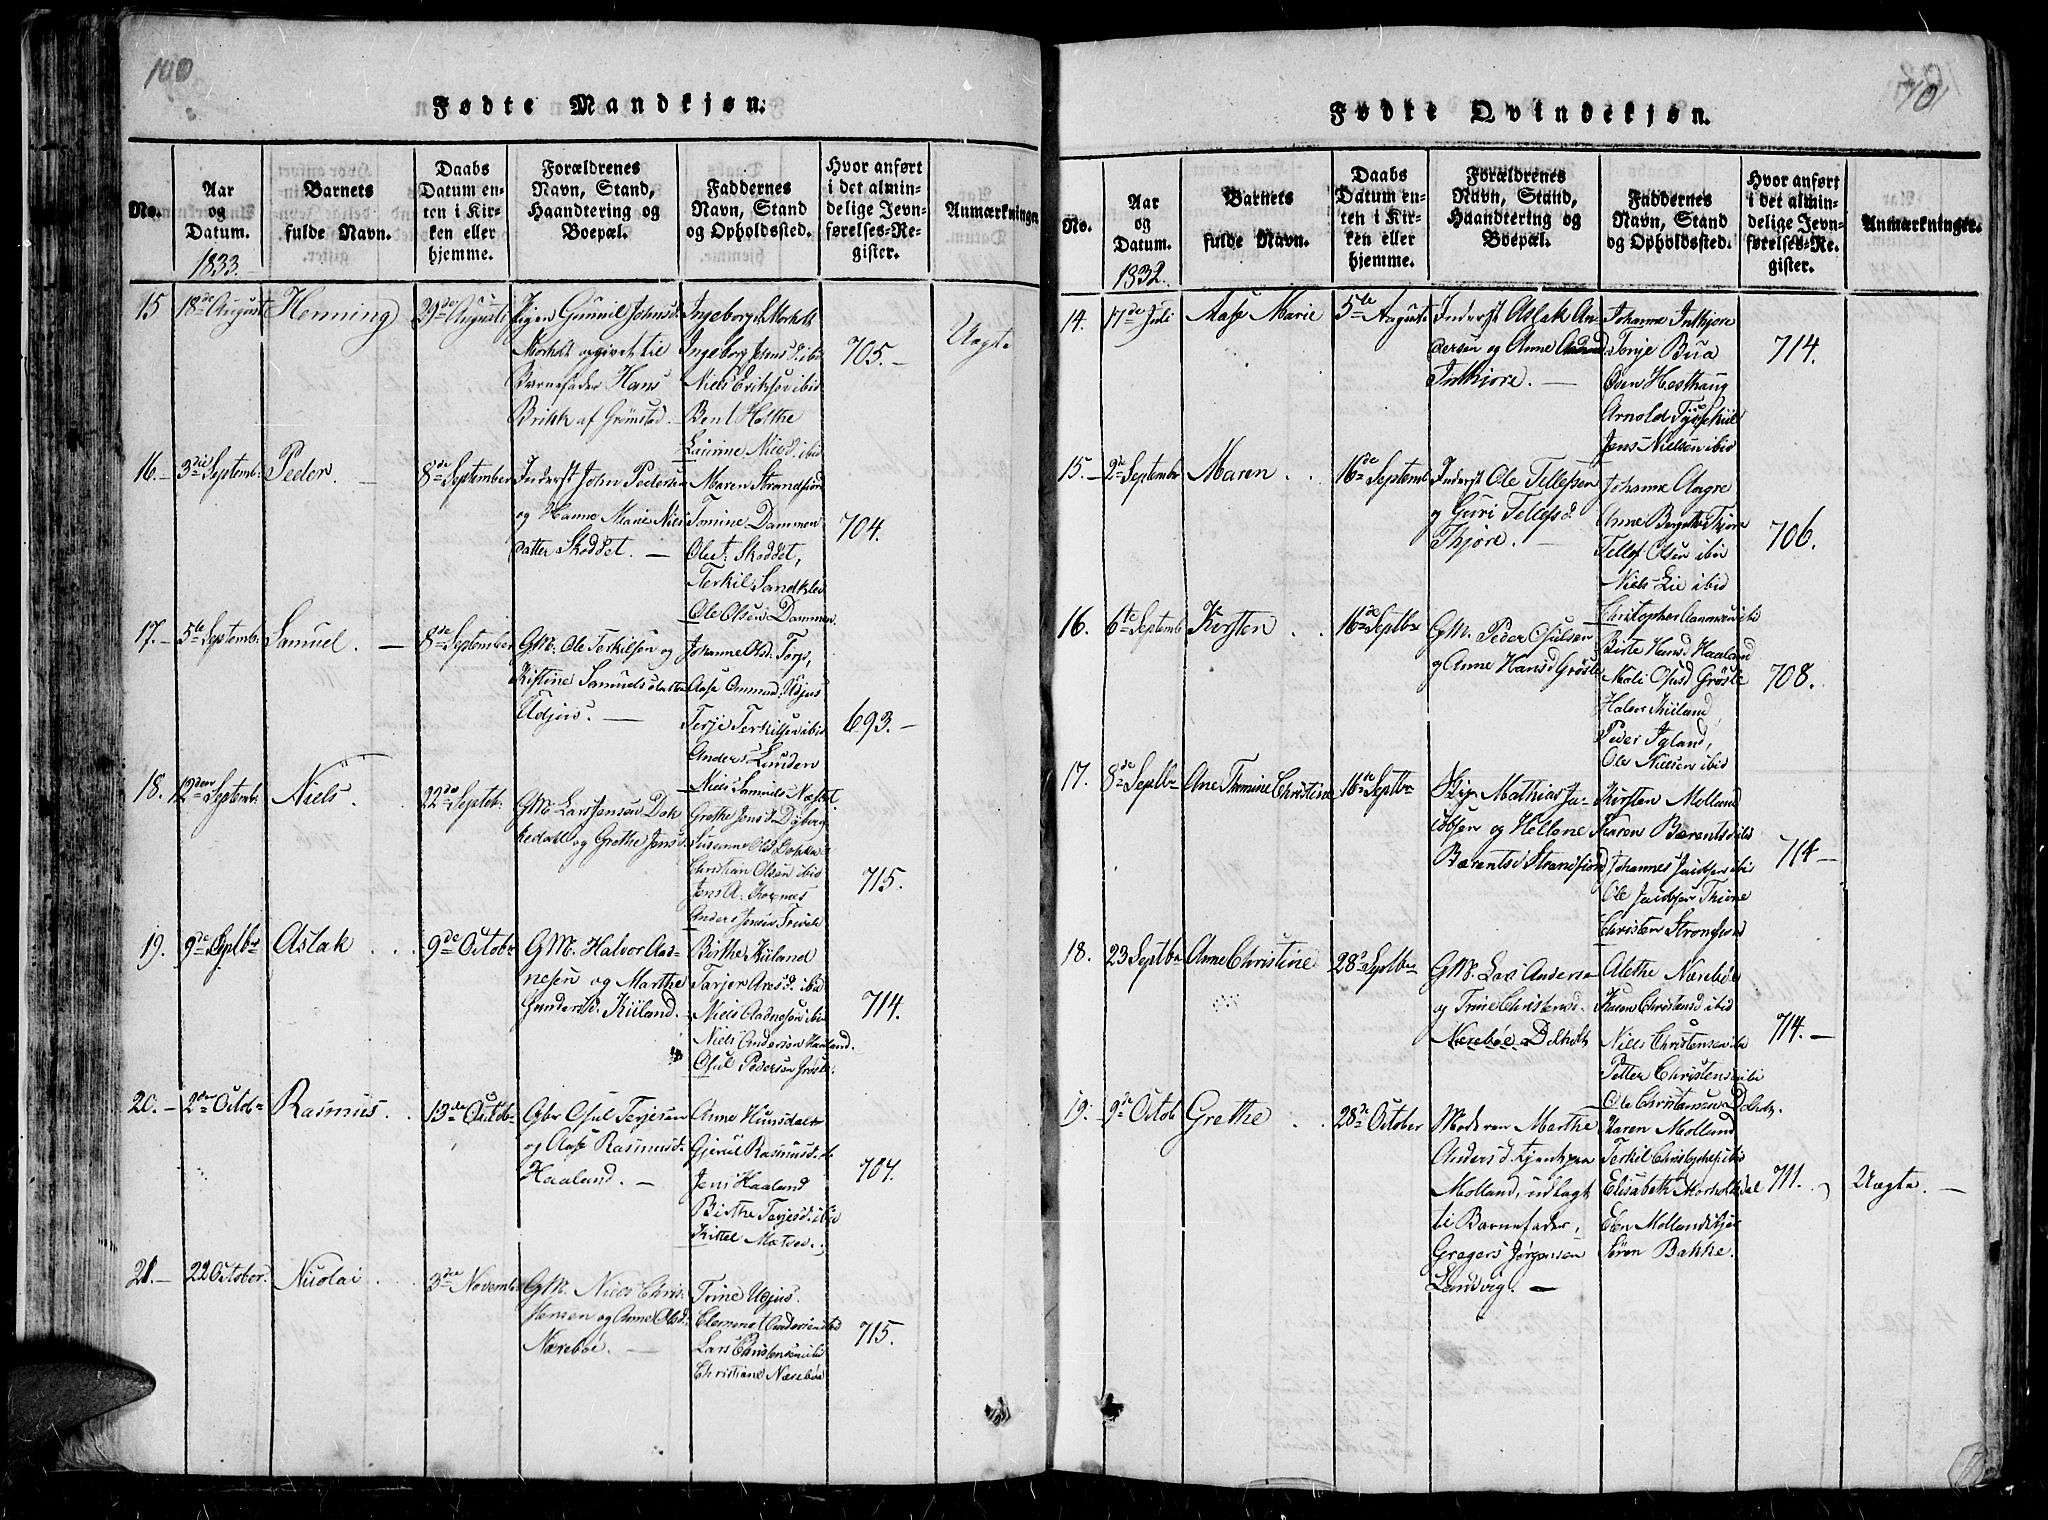 100
Fødte Mandkjøn.
No.
Aar
og
Datum.
1833.
Barnets
fulde Navn.
Daabs
Datum en-
ten i Kir-
ken eller
hjemme.
Forældrenes
Navn, Stand,
Haandtering og
Boepæl.
Faddernes
Navn, Stand
og Opholdssted.
Hvor anført
i det almin-
delige Jevn-
førelses-Re-
gister.
Anmærkninger
15 18de August Henning
Pigen Gunnil Johnsd.
Morholt opgivet til
Barnefader Hans
Brikk af Grømstad.
Ingeborg Morholt
Ingeborg Jensd. ibid
Niels Eriksen ibid
Bent Holthe
Laurine Nielsd. ibid
705.-
Uægte
16.- 3die Septemb. Peder. -
8de September
Inderst John Pedersen
og Hanne Marie Niels
datter Skoddet. -
Maren Strandfiord
Tomine Dammen
Ole T. Skoddet,
Terkil Sandklev
Ole Olsen Dammen.
704.
17.- 5te Septemb. Samuel. -
8de September
GM. Ole Terkilsen og
Kistine Samuelsdatter
Udjus. -
Johanne Olsd. Torp,
Aase Ommund. Udjus
Terje Terkilsen ibid
Anders Lunden
Niels Samuels. Næset.
693.-
18. 12den Septemb. Niels.
22de Septeb.
GM. Lars Jensen Dok
kedal og Grethe Jensd.
Grethe Jensd. Dyberg
Susanne Olsd. Dokka
Christian Olsen ibid
Jens A. Kornæs
Anders Jensen
715.
19. 9de Septbr Aslak
9de Octobr
GM. Halvor Aad-
nesen og Marthe
Gundersd. Kiiland.
Birthe Kiiland
Tarjer Aresd. ibid
Niels Aadnesen ibid
Niels Andersen Haaland.
Osul Pedersen Grøsle.
714.
20.- 2den Octob- Rasmus.
13de Octob-
Gbr Osul Terjesen
og Aase Rasmusd.
Haaland. -
Anne Hunsdal
Gjeruld Rasmusd.
Jens Haaland
Birthe Terjesd. ibid
Kittel
707.
21.- 22 October. Nicolai
3die Novemb.
GM. Niels Chris-
tensen og Anne Olsd.
Nærebøe. -
Trine Udjus.
Clemmet Andersen
Lars Christensen ibid
Christiane Nærebøe
715.
101
Fødte Qvindekjøn.
No.
Aar
og
Datum.
1832.
Barnets
fulde Navn.
Daabs
Datum en-
ten i Kir-
ken eller
hjemme.
Forældrenes
Navn, Stand,
Haandtering og
Boepæl.
Faddernes
Navn, Stand
og Opholdssted.
Hvor anført
i det almin-
delige Jevn-
førelses-Re-
gister.
Anmærkninger.
14. 17de Juli Aase Marie
5te August
Inderst Aslak An-
dersen og Anne
Inthjore. -
Johanne Inthjore
Tonje Bua
Even Hesthaug
Arnold
Jens Nielsen ibid
714.
15.- 2de Septembr Maren
16de Septemb
Inderst Ole Tellefsen
og Guri Tellefsd.
Thjore. -
Johanne Aagre
Anne Bergethe Thjore
Tellef Olsen ibid
Niels Lie ibid
706.
16. 6te Septemb Kirsten
16de Septbr
GM. Peder Osulsen
og Anne Hansd Grøsle
Christopher Aanonsen ibid
Birte Hansd Haaland
Mali Osusd Grøsle
Halvor Kiiland,
Peder Igland,
Ole Nielsen ibid
708.
17. 8de Septbr Ane Thomine Christine
16de Septbr
Skip. Mathias Ja-
cobsen og Hellene
Bærentsd Strandfiord
Kirsten Molland
Karen Bærentsd ibid
Johannes Jacobsen ibid
Ole Jacobsen Thiore
Christen Strandfiord
714-
18. 23 Septbr Anne Christine
28de Septbr
GM. Lars Andersen
og Trine Christensd.
Nærebøe Dolholt
Alethe Nærebøe
Karen Christensd ibid
Niels Christensen ibi
Petter Christensen ibi
Ole Christensen Dolholt.
714.-
19. 9de Octob Grethe
28de October
Moderen Marthe
Andersd. tjenhpaa
Molland, udlagt
til Barnefader,
Gregers Jørgensen
Landvig. -
Karen Molland
Terkil Christophers. ibid
Elisabeth Morholtdal
Even Mollandskjær
Søren Bakke.
711.
Uægte. -